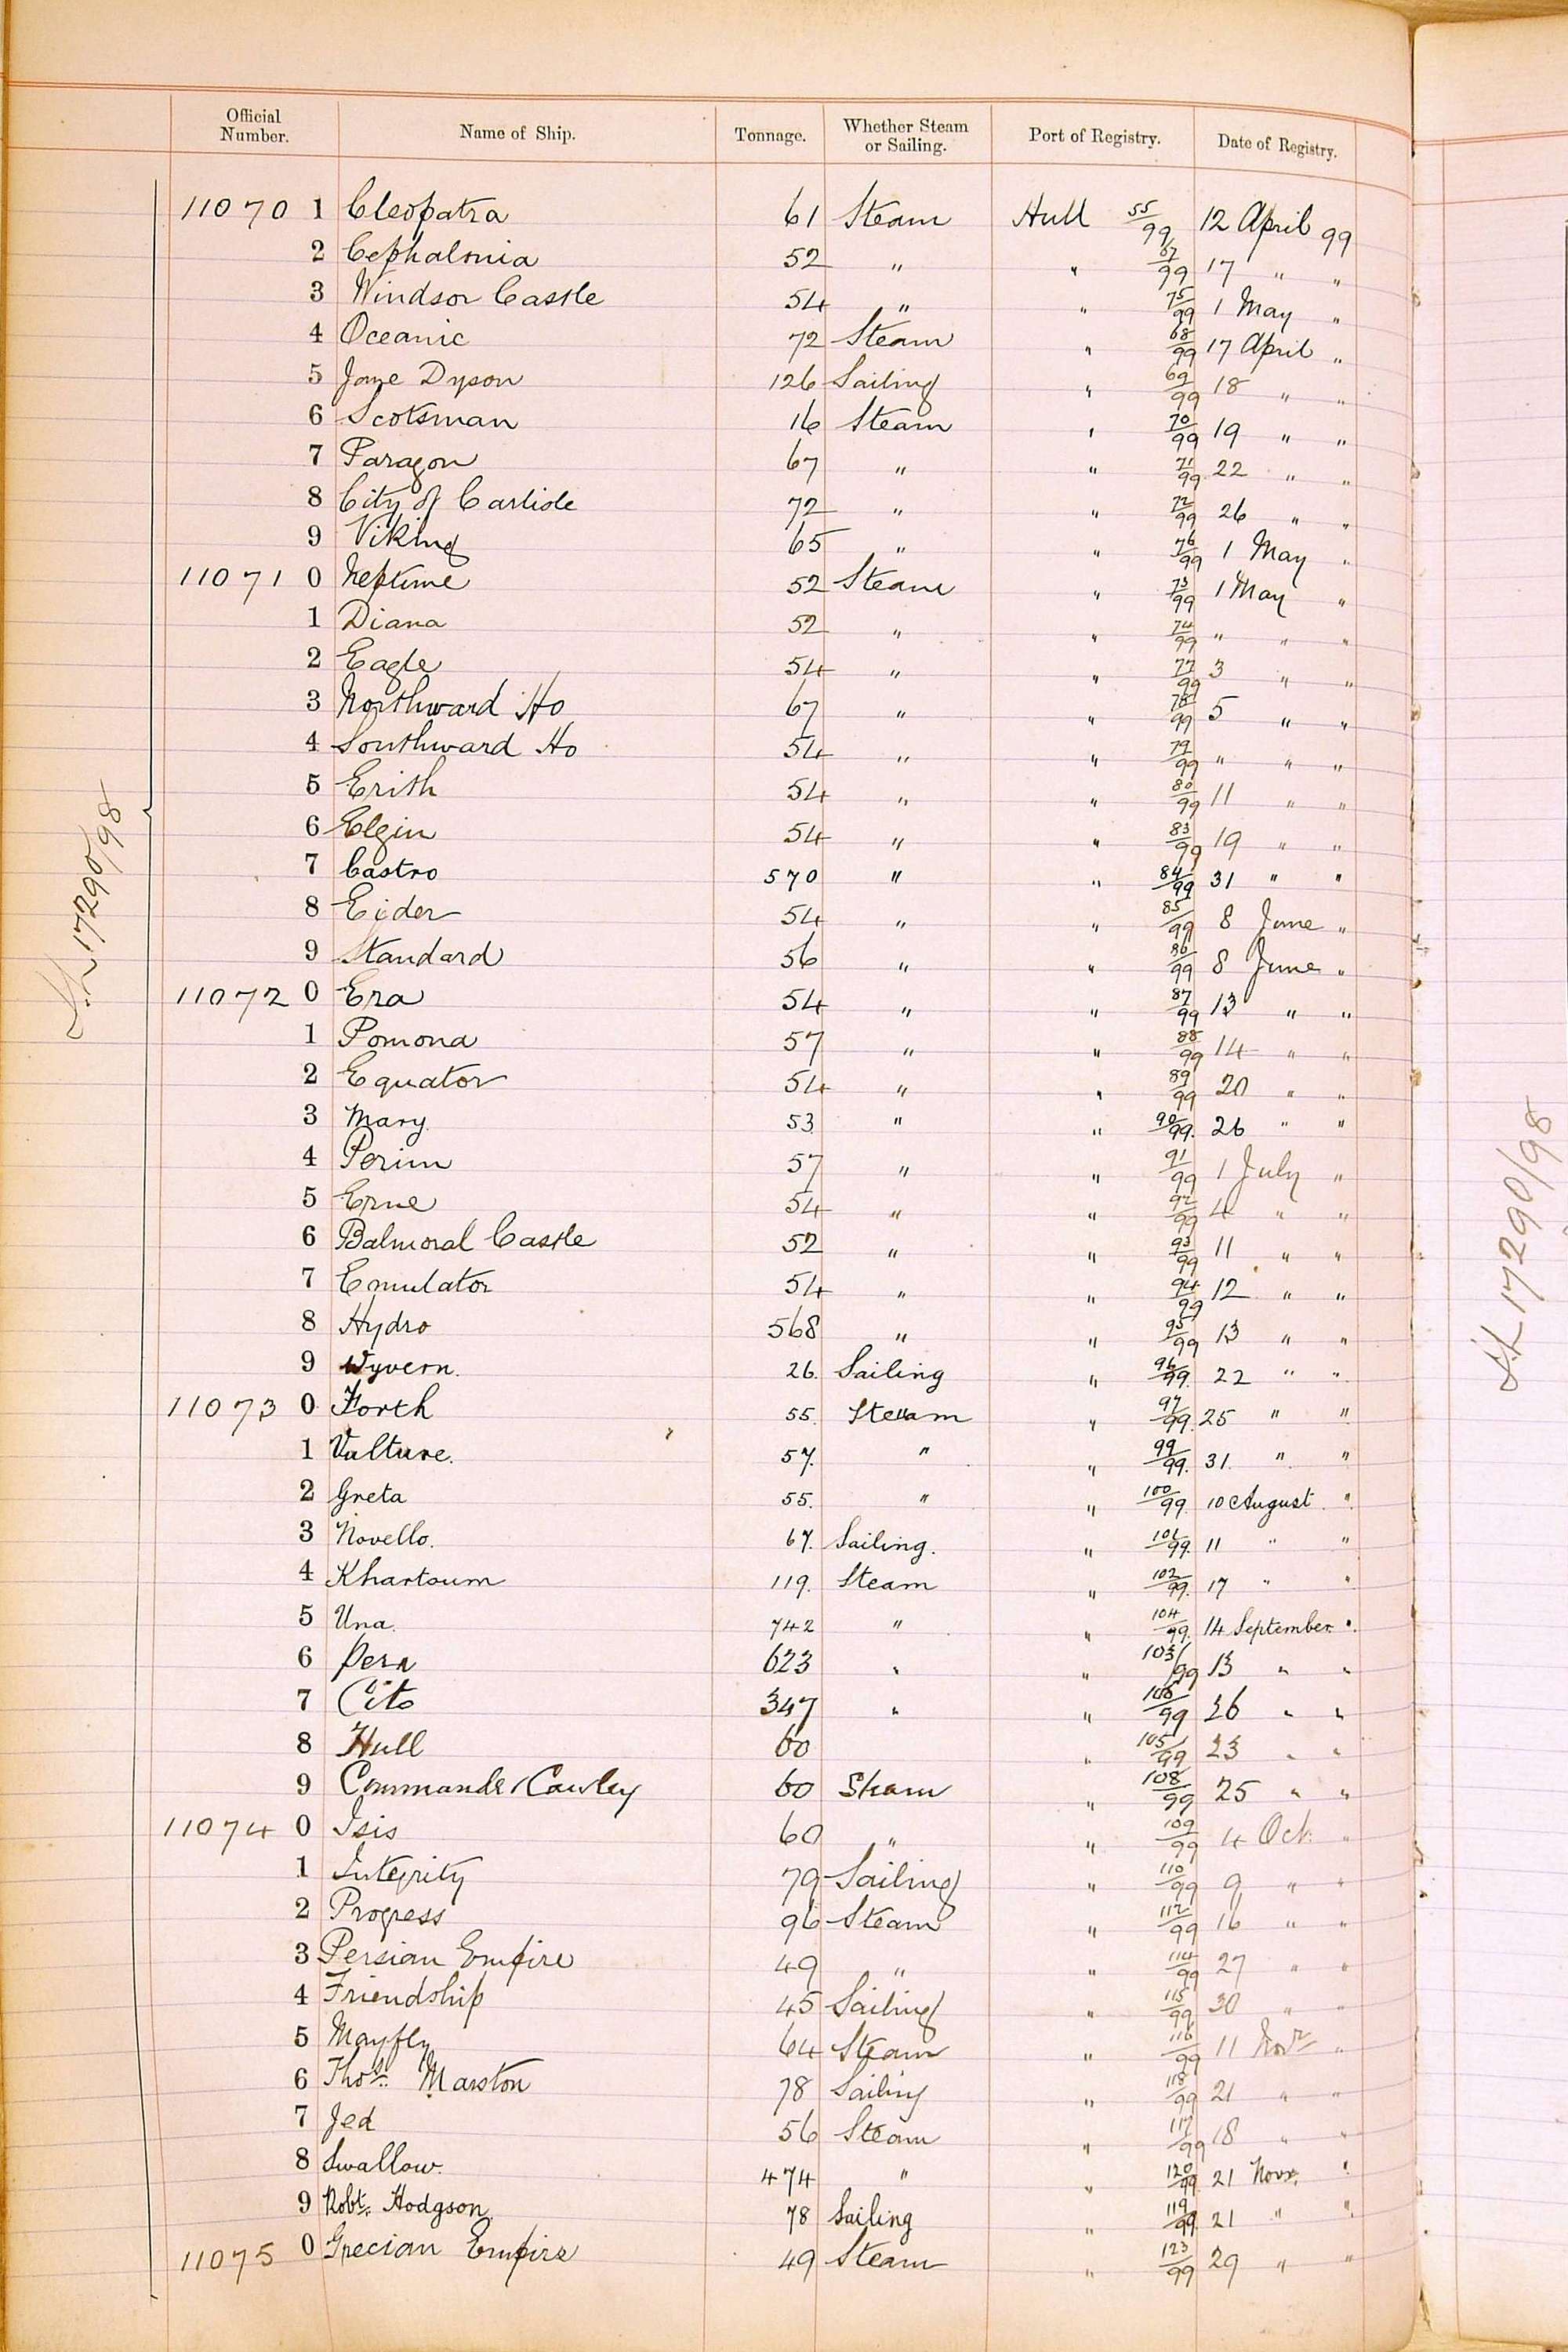 Official Number. Name of Ship. Tonnage. Whether Steam or Sailing. Port of Registry. Date of Registry.
11070 1 Cleopatra 61 Steam Hull 55/99 12 April 99
2 Cephalonia 52 " " 67/99 17 " "
3 Windsor Castle 54 " " 75/99 1 May "
4 Oceanic 72 Steam " 68/99 17 April "
5 Jane Dyson 126 Sailing " 69/99 18 " "
6 Scotsman 16 Steam " 70/99 19 " "
7 Paragon 67 " " 71/99 22 " "
8 City of Carlisle 72 " " 72/99 26 " "
9 Viking 65 " " 76/99 1 May "
11071 0 Neptune 52 Steam " 73/99 1 May "
1 Diana 52 " " 74/99 " " "
2 Eagle 54 " " 77/99 3 " "
3 Northward Ho 67 " " 78/99 5 " "
4 Southward Ho 54 " " 79/99 " " "
5 Erith 54 " " 80/99 11 " "
6 Elgin 54 " " 83/99 19 " "
7 Castro 570 " " 84/99 31 " "
8 Eider 54 " " 85/99 8 June "
9 Standard 56 " " 86/99 8 June "
11072 0 Era 54 " " 87/99 13 " "
1 Pomona 57 " " 88/99 14 " "
2 Equator 54 " " 89/99 20 " "
3 Mary. 53 " " 90/99. 26 " "
4 Perim 57 " " 91/99 1 July "
5 Erne 54 " " 92/99 4 " "
6 Balmoral Castle 52 " " 93/99 11 " "
7 Emulator 54 " " 94/99 12 " "
8 Hydro 568 " " 95/99 13 " "
9 Wyvern. 26. Sailing " 96/99. 22 " "
11073 0 Forth 55. Steam " 97/99. 25 " "
1 Vulture. 57. " " 99/99. 31. " "
2 Greta 55. " " 100/99. 10 August "
3 Novello. 67. Sailing. " 101/99. 11 " "
4 Khartoum 119. Steam " 102/99. 17 " "
5 Una. 742 " " 104/99. 14 September "
6 Pera 623 " " 103/99 13 " "
7 Cito 347 " " 106/99 26 " "
8 Hull 60 " 105/99 23 " "
9 Commander Cawley 60 Steam " 108/99 25 " "
11074 0 Isis 60 " " 109/99 4 Oct. "
1 Integrity 79 Sailing " 110/99 9 " "
2 Progress 96 Steam " 112/99 16 " "
3 Persian Empire 49 " " 114/99 27 " "
4 Friendship 45 Sailing " 115/99 30 " "
5 Mayfly 64 Steam " 116/99 11 Novr "
6 Thos. Marston 78 Sailing " 118/99 21 " "
7 Jed 56 Steam " 117/99 18 " "
8 Swallow. 474 " " 120/99 21 Novr. "
9 Robt. Hodgson. 78 Sailing " 119/99. 21 " "
11075 0 Grecian Empire 49 Steam " 123/99 29 " "
17290/98
17290/98